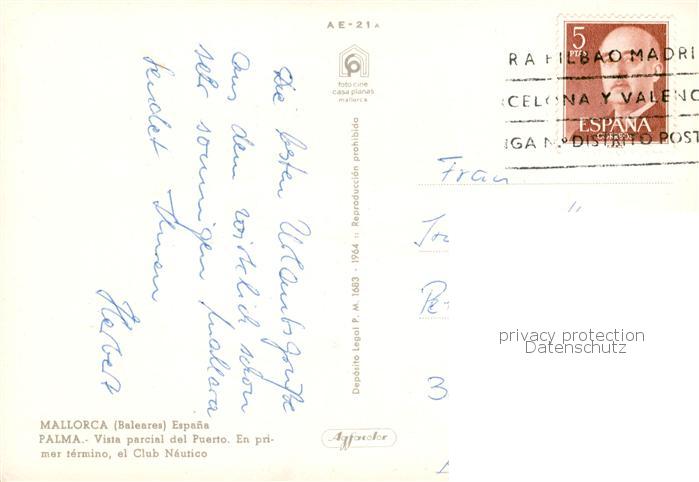 AE-21A
foto cine
casa planas
mallorca
Die besten Urlaubsgrüße
aus dem wirklich schon
sehr sonnigen Mallorca
sendet Ihnen
Herbert
Depósito Legal P. M. 1683 - 1964 :: Reproducción prohibida
5
PTAS
ESPAÑA
CORREOS
RA BILBAO MADRI
CELONA Y VALENC
NGA Nº DISTRITO POST
Frau
privacy protection
Datenschutz
MALLORCA (Baleares) España
PALMA.- Vista parcial del Puerto. En pri-
mer término, el Club Náutico
Agfacolor